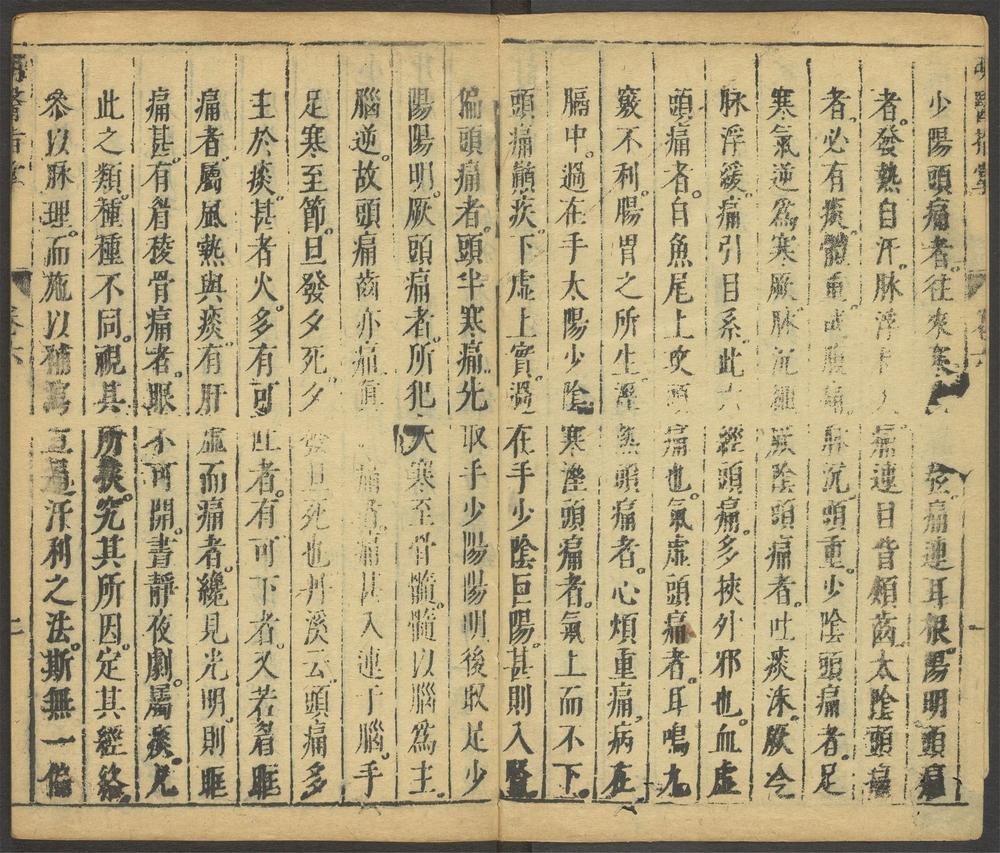 少陽頭痛者。往來寒 弦。痛連耳根。陽明頭痛
者。發熱自汗。脉浮 痛連目眥頰齒。太陰頭痛
者。必有痰。體重。或腹痛。脉沉。頭重。少陰頭痛者。足
寒氣逆爲寒厥。脉沉細。厥陰頭痛者。吐痰沫。厥冷。
脉浮緩。痛引目系。此六經頭痛。多挾外邪也。血虛
頭痛者。自魚尾上攻頭痛也。氣虛頭痛者。耳鳴九
竅不利。腸胃之所生。溼熱頭痛者。心煩重痛。病在
膈中。過在手太陽少陰。寒溼頭痛者。氣上而不下。
頭痛巔疾。下虛上實。過在手少陰巨陽。甚則入腎。
偏頭痛者。頭半寒痛。先取手少陽陽明。後取足少
陽陽明。厥頭痛者。所犯大寒至骨髓。髓以腦爲主。
腦逆。故頭痛齒亦痛。眞 痛者。痛甚入連于腦。手
足寒至節。旦發夕死。夕發旦死也。丹溪云。頭痛多
主於痰。甚者火。多有可吐者。有可下者。又若眉眶
痛者。屬風熱與痰。有肝虛而痛者。纔見光明。則眶
痛甚。有眉稜骨痛者。眼不可開。晝靜夜劇。屬痰。凡
此之類。種種不同。視其所挾。究其所因。定其經絡。
參以脉理。而施以補瀉宣通汗利之法。斯無一偏